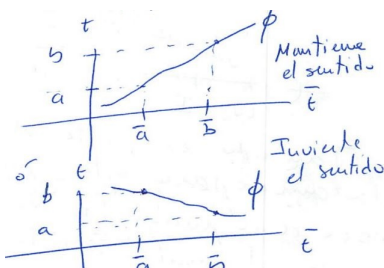 t
b
ϕ
Mantiene
el sentido
a
t̄
ā
b̄
ó
t
Invierte
el sentido
b
ϕ
a
t̄
ā
b̄